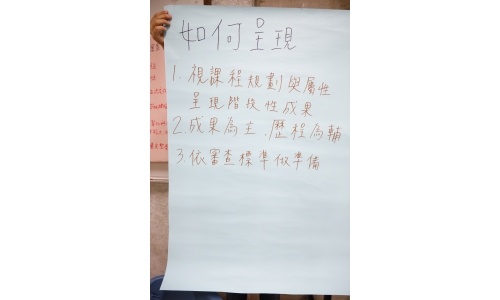 如何呈現
1. 視課程規劃與屬性
呈現階段性成果
2. 成果為主、歷程為輔
3. 依審查標準做準備